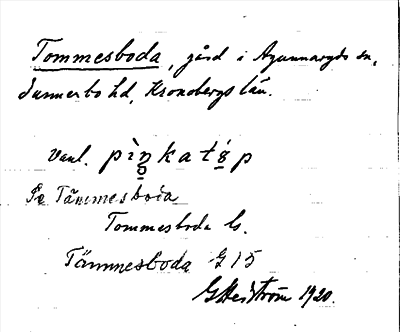 Tommesboda, gård i Agunnaryds sn,
Sunnerbo hd, Kronobergs län.
Vanl. pìŋkatóp
Se Tämmesboda
Tommesboda ls.
Tämmesboda G 15
G Hedström 1920.